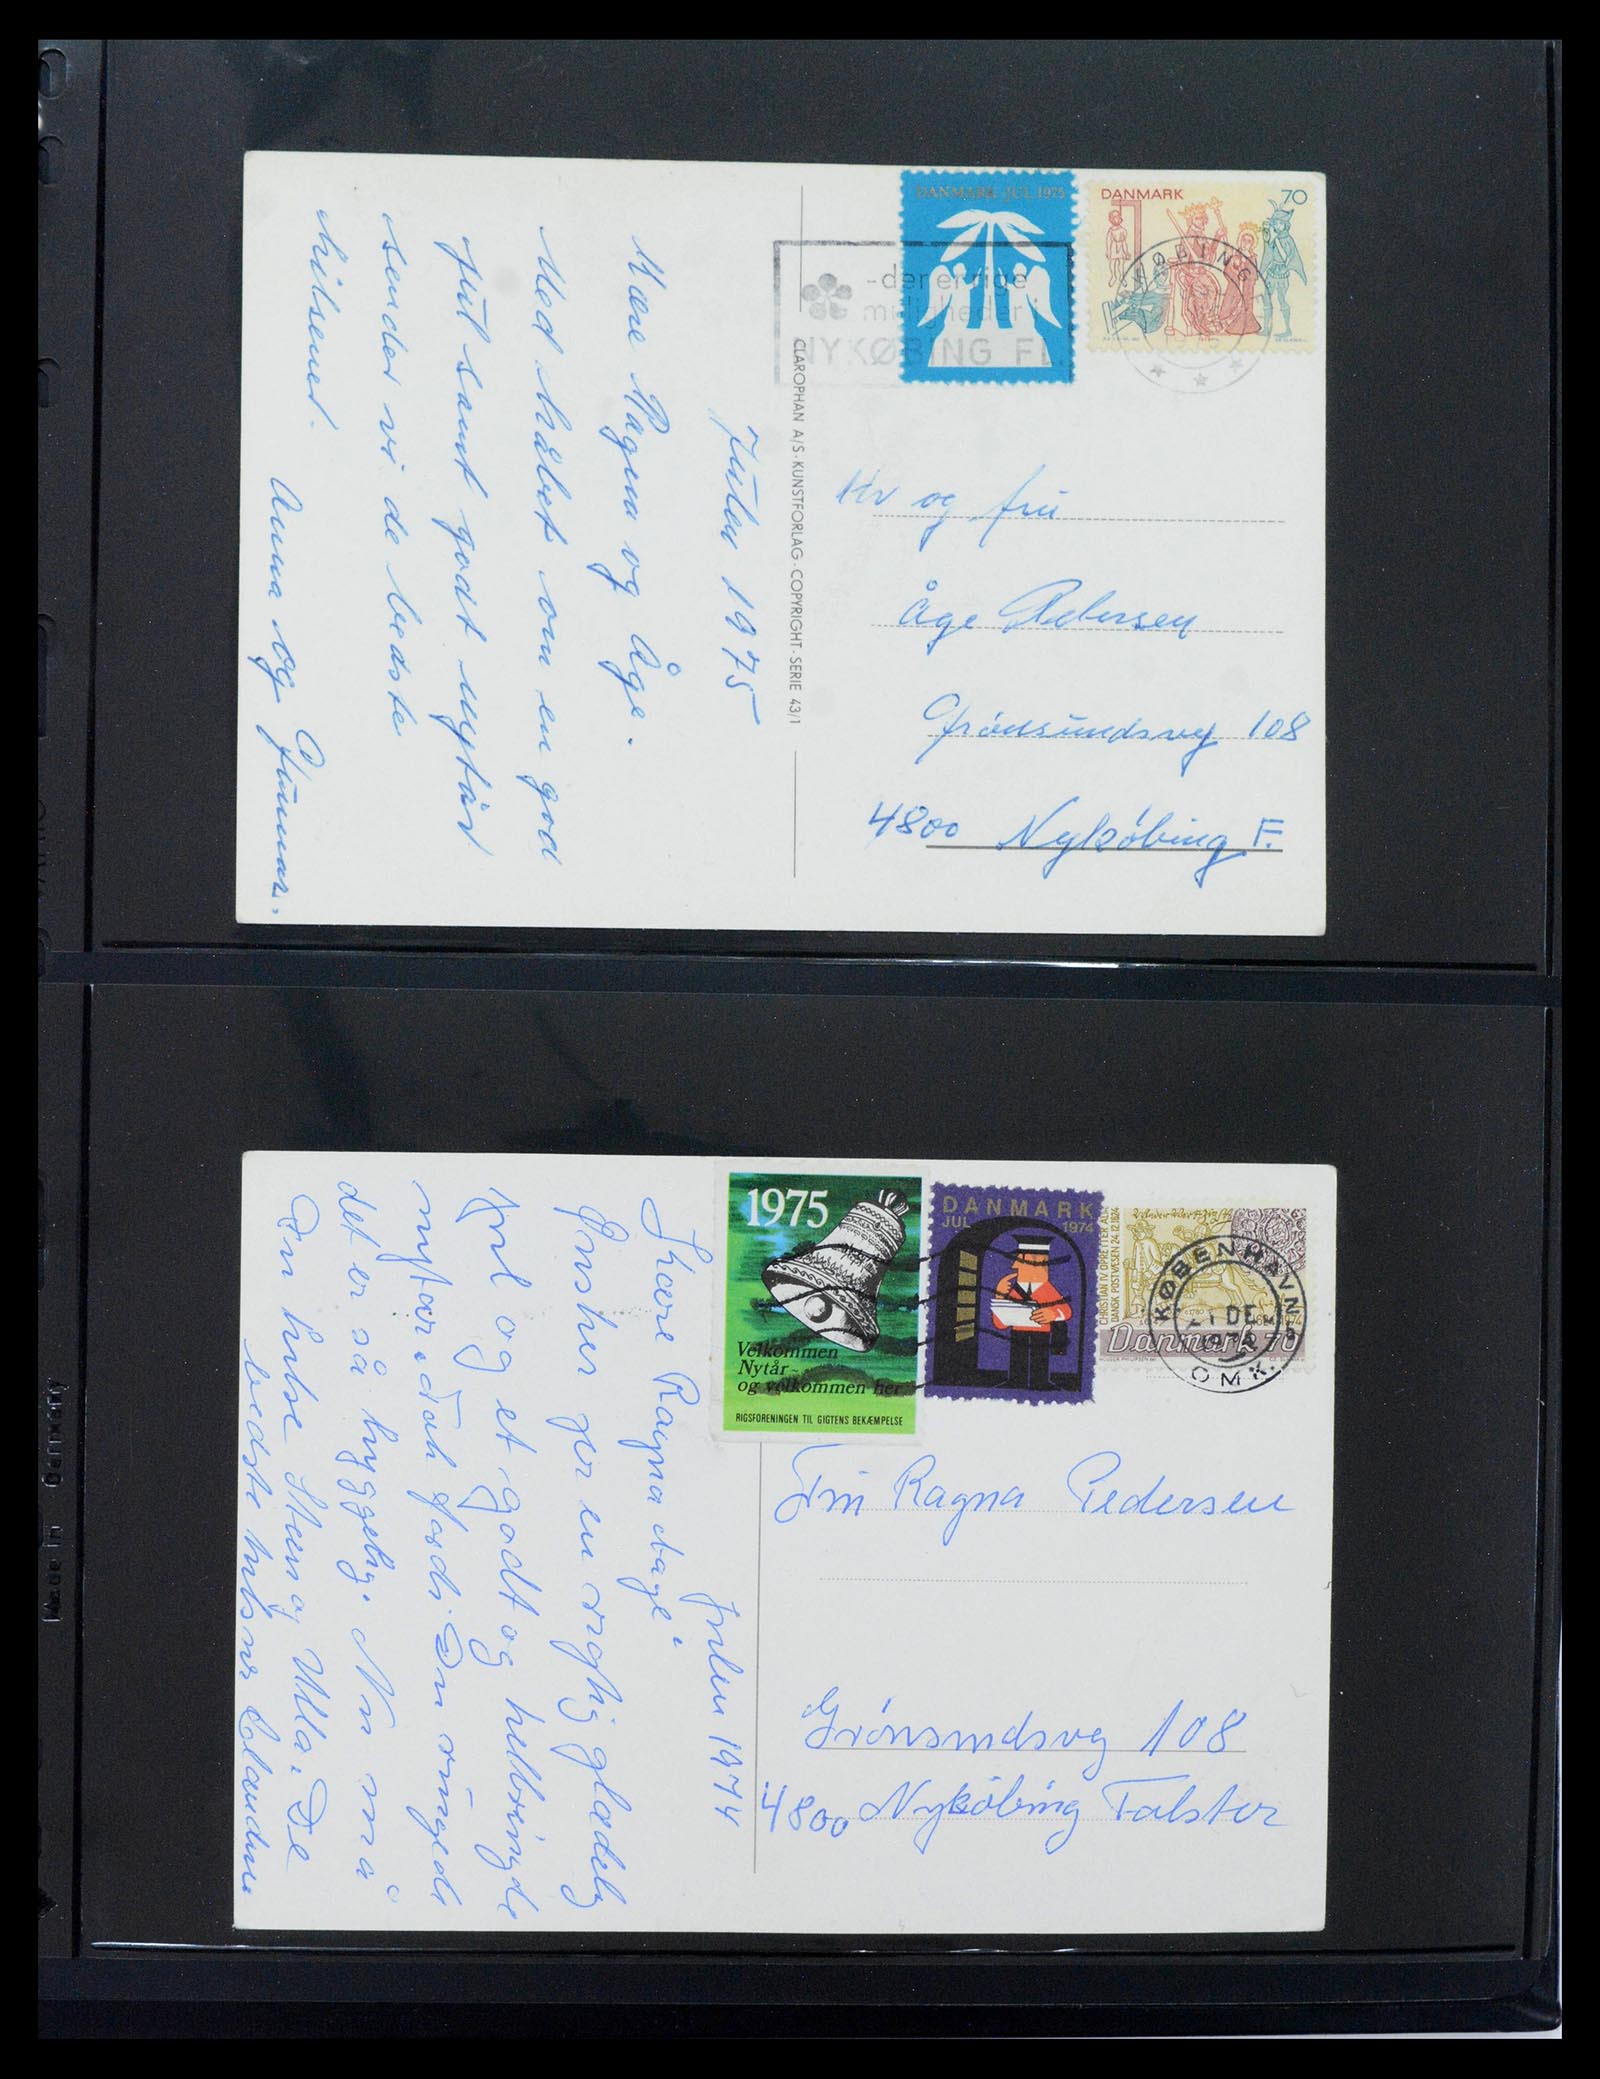 DANMARK JUL 1975
DANMARK 70
KØBING
-der er rige
muligheder i
NYKØBING FL.
CLAROPHAN A/S · KUNSTFORLAG · COPYRIGHT · SERIE 43/1
Julen 1975
Kære Ragna og Åge.
Med håbet om en god
jul samt godt nytår
sender vi de bedste
hilsener.
Anna og Gunnar.
Hr og fru
Åge Pedersen
Grønsundsvej 108
4800 Nykøbing F.
1975
Velkommen
Nytår -
og velkommen her
RIGSFORENINGEN TIL GIGTENS BEKÆMPELSE
DANMARK
JUL 1974
CHRISTIAN IV OPRETTER ALM.
DANSK POSTVÆSEN 24.12.1624
Danmark 70
KØBENHAVN
OMK.
Julen 1974
Kære Ragna
Ønsker jer en rigtig glædelig
jul og et godt og helbringende
nytår. Tak fordi Du ringede
det er så hyggeligt. Nu må
Du hilse Steen og Ulla. De
bedste hilsner
Fru Ragna Pedersen
Grønsundsvej 108
4800 Nykøbing Falster
Made in Germany